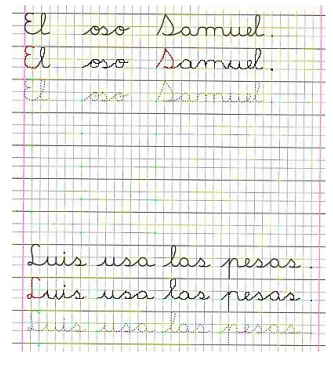 El oso Samuel.
El oso Samuel.
El oso Samuel
Luis usa las pesas.
Luis usa las pesas.
Luis usa las pesas